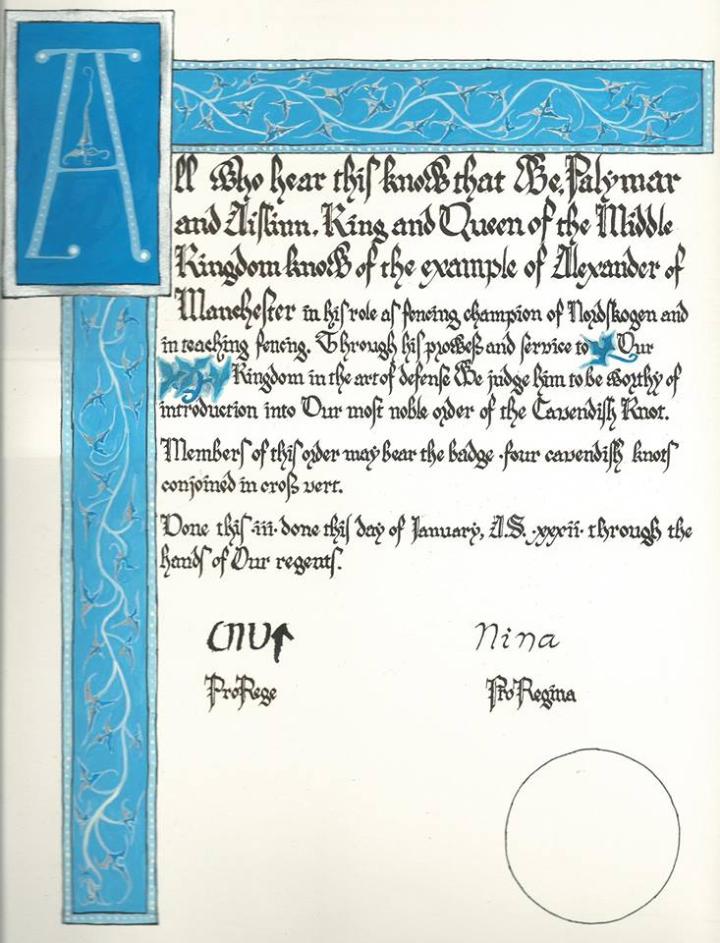 All who hear this know that We, Palymar
and Aislinn, King and Queen of the Middle
Kingdom know of the example of Alexander of
Manchester in his role as fencing champion of Nordskogen and
in teaching fencing. Through his prowess and service to Our
Kingdom in the art of defense We judge him to be worthy of
introduction into Our most noble order of the Cavendish Knot.
Members of this order may bear the badge · four cavendish knots
conjoined in cross vert.
Done this ·iii· done this day of January, A.S. ·xxxii· through the
hands of Our regents.
CNUT Nina
ProRege Pro Regina